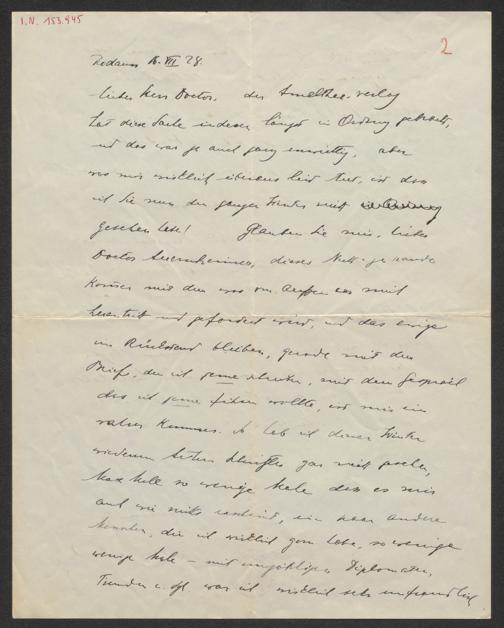 I.N. 153.945
2
Rodaun 16. VII 28.
lieber Herr Doctor, der Amalthea-verlag
hat diese Sache indessen längst in Ordnung gebracht,
und das war ja auch ganz unwichtig, aber
was mir wirklich überaus leid tut, ist dass
ich Sie nun den ganzen Winter nicht
gesehen habe! Glauben Sie mir, lieber
Doctor dieses Nicht-zu rande
kommen mit dem was von aussen an mich
und gefordert wird, und das ewige
im Rückstand bleiben, gerade mit den
Briefen, die ich gerne schriebe, mit dem Gespräch
das ich gerne führen wollte, ist mir ein
wahrer Kummer. So hab ich diesen Winter
wiederum Arthur Schnitzler gar nicht gesehen,
Max Mell so wenige Male dass es mir
auch wie nichts erscheint, ein paar andere
Menschen, die ich wirklich gern habe, so wenige
wenige Male – mit unzähligen Diplomaten,
Fremden u. sf. war ich wirklich sehr unfreundlich